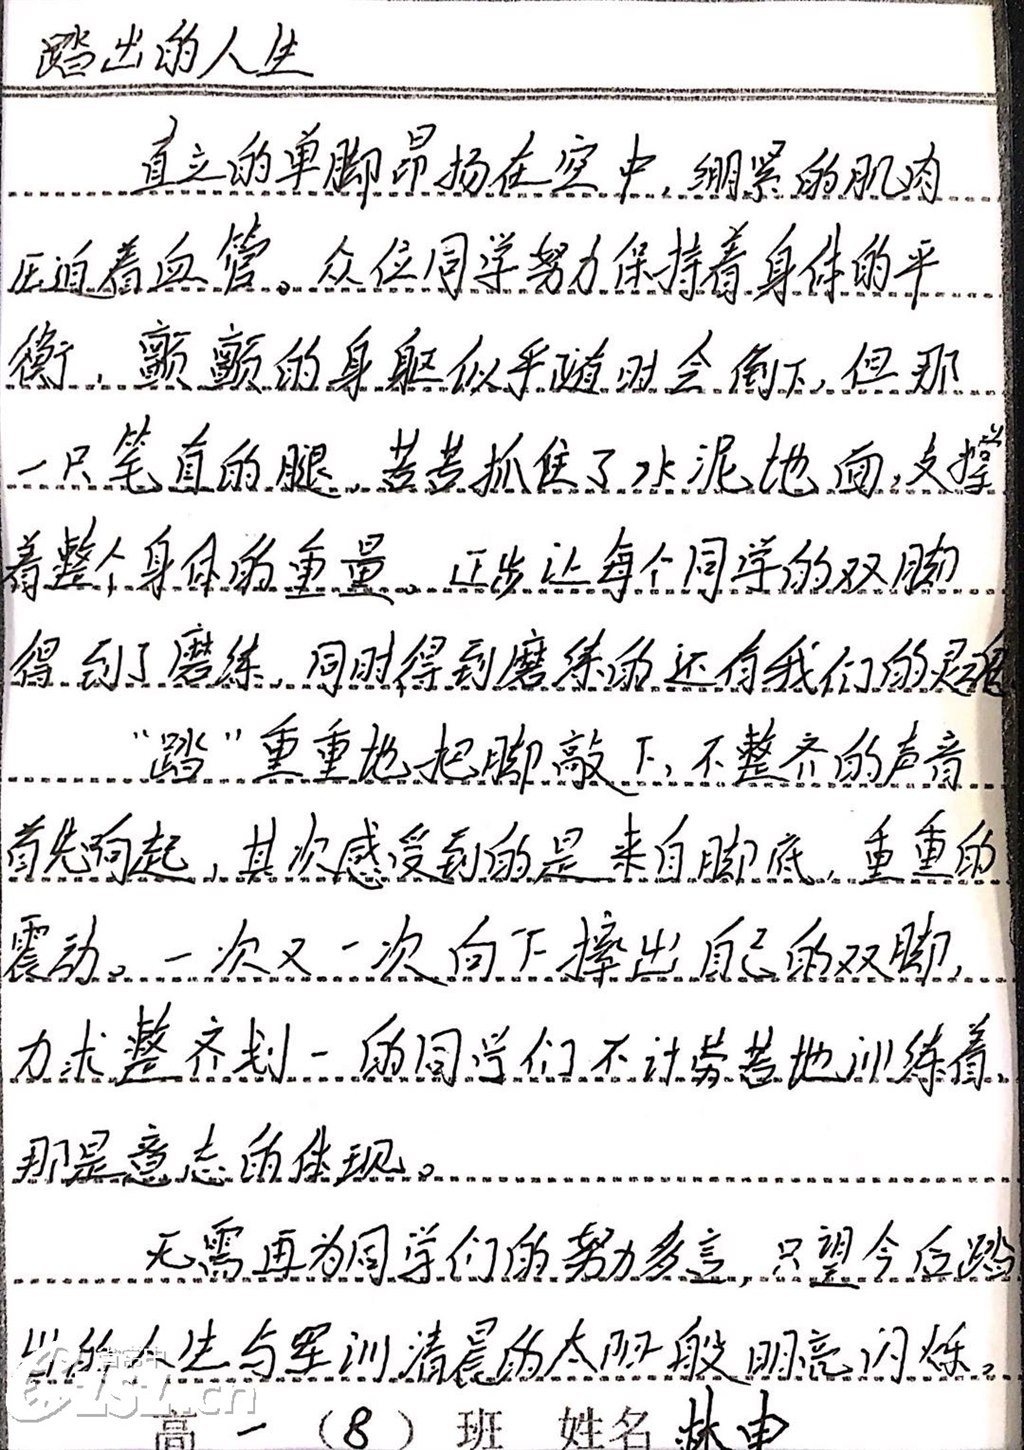 踏出的人生
直立的单脚昂扬在空中,绷紧的肌肉
压迫着血管。众位同学努力保持着身体的平
衡,颤颤的身躯似乎随时会倒下,但那
一只笔直的腿,苦苦抓住了水泥地面,支撑
着整个身体的重量。正步让每个同学的双脚
得到了磨练,同时得到磨练的还有我们的灵魂
“踏”重重地把脚敲下,不整齐的声音
首先响起,其次感受到的是来自脚底,重重的
震动。一次又一次向下摔出自己的双脚,
力求整齐划一的同学们不计劳苦地训练着,
那是意志的体现。
无需再为同学们的努力多言,只望今后踏
出的人生与军训清晨的太阳般明亮闪烁。
高一(8)班 姓名 林申
LSLJ.cn